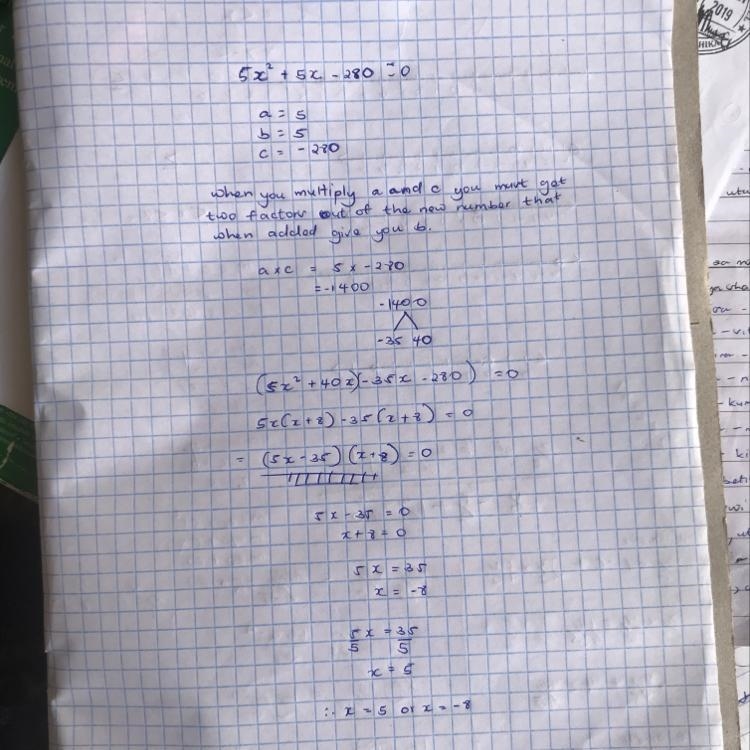 5x² + 5x - 280 = 0
a = 5
b = 5
c = - 280
when you multiply a and c you must get
two factors out of the new number that
when added give you b.
a x c = 5 x - 280
= -1400
-1400
-35 40
(5x² + 40x)(-35x - 280) = 0
5x(x+8) - 35(x+8) = 0
= (5x - 35)(x+8) = 0
5x - 35 = 0
x + 8 = 0
5x = 35
x = -8
5x/5 = 35/5
x = 5
∴ x = 5 or x = -8
2019